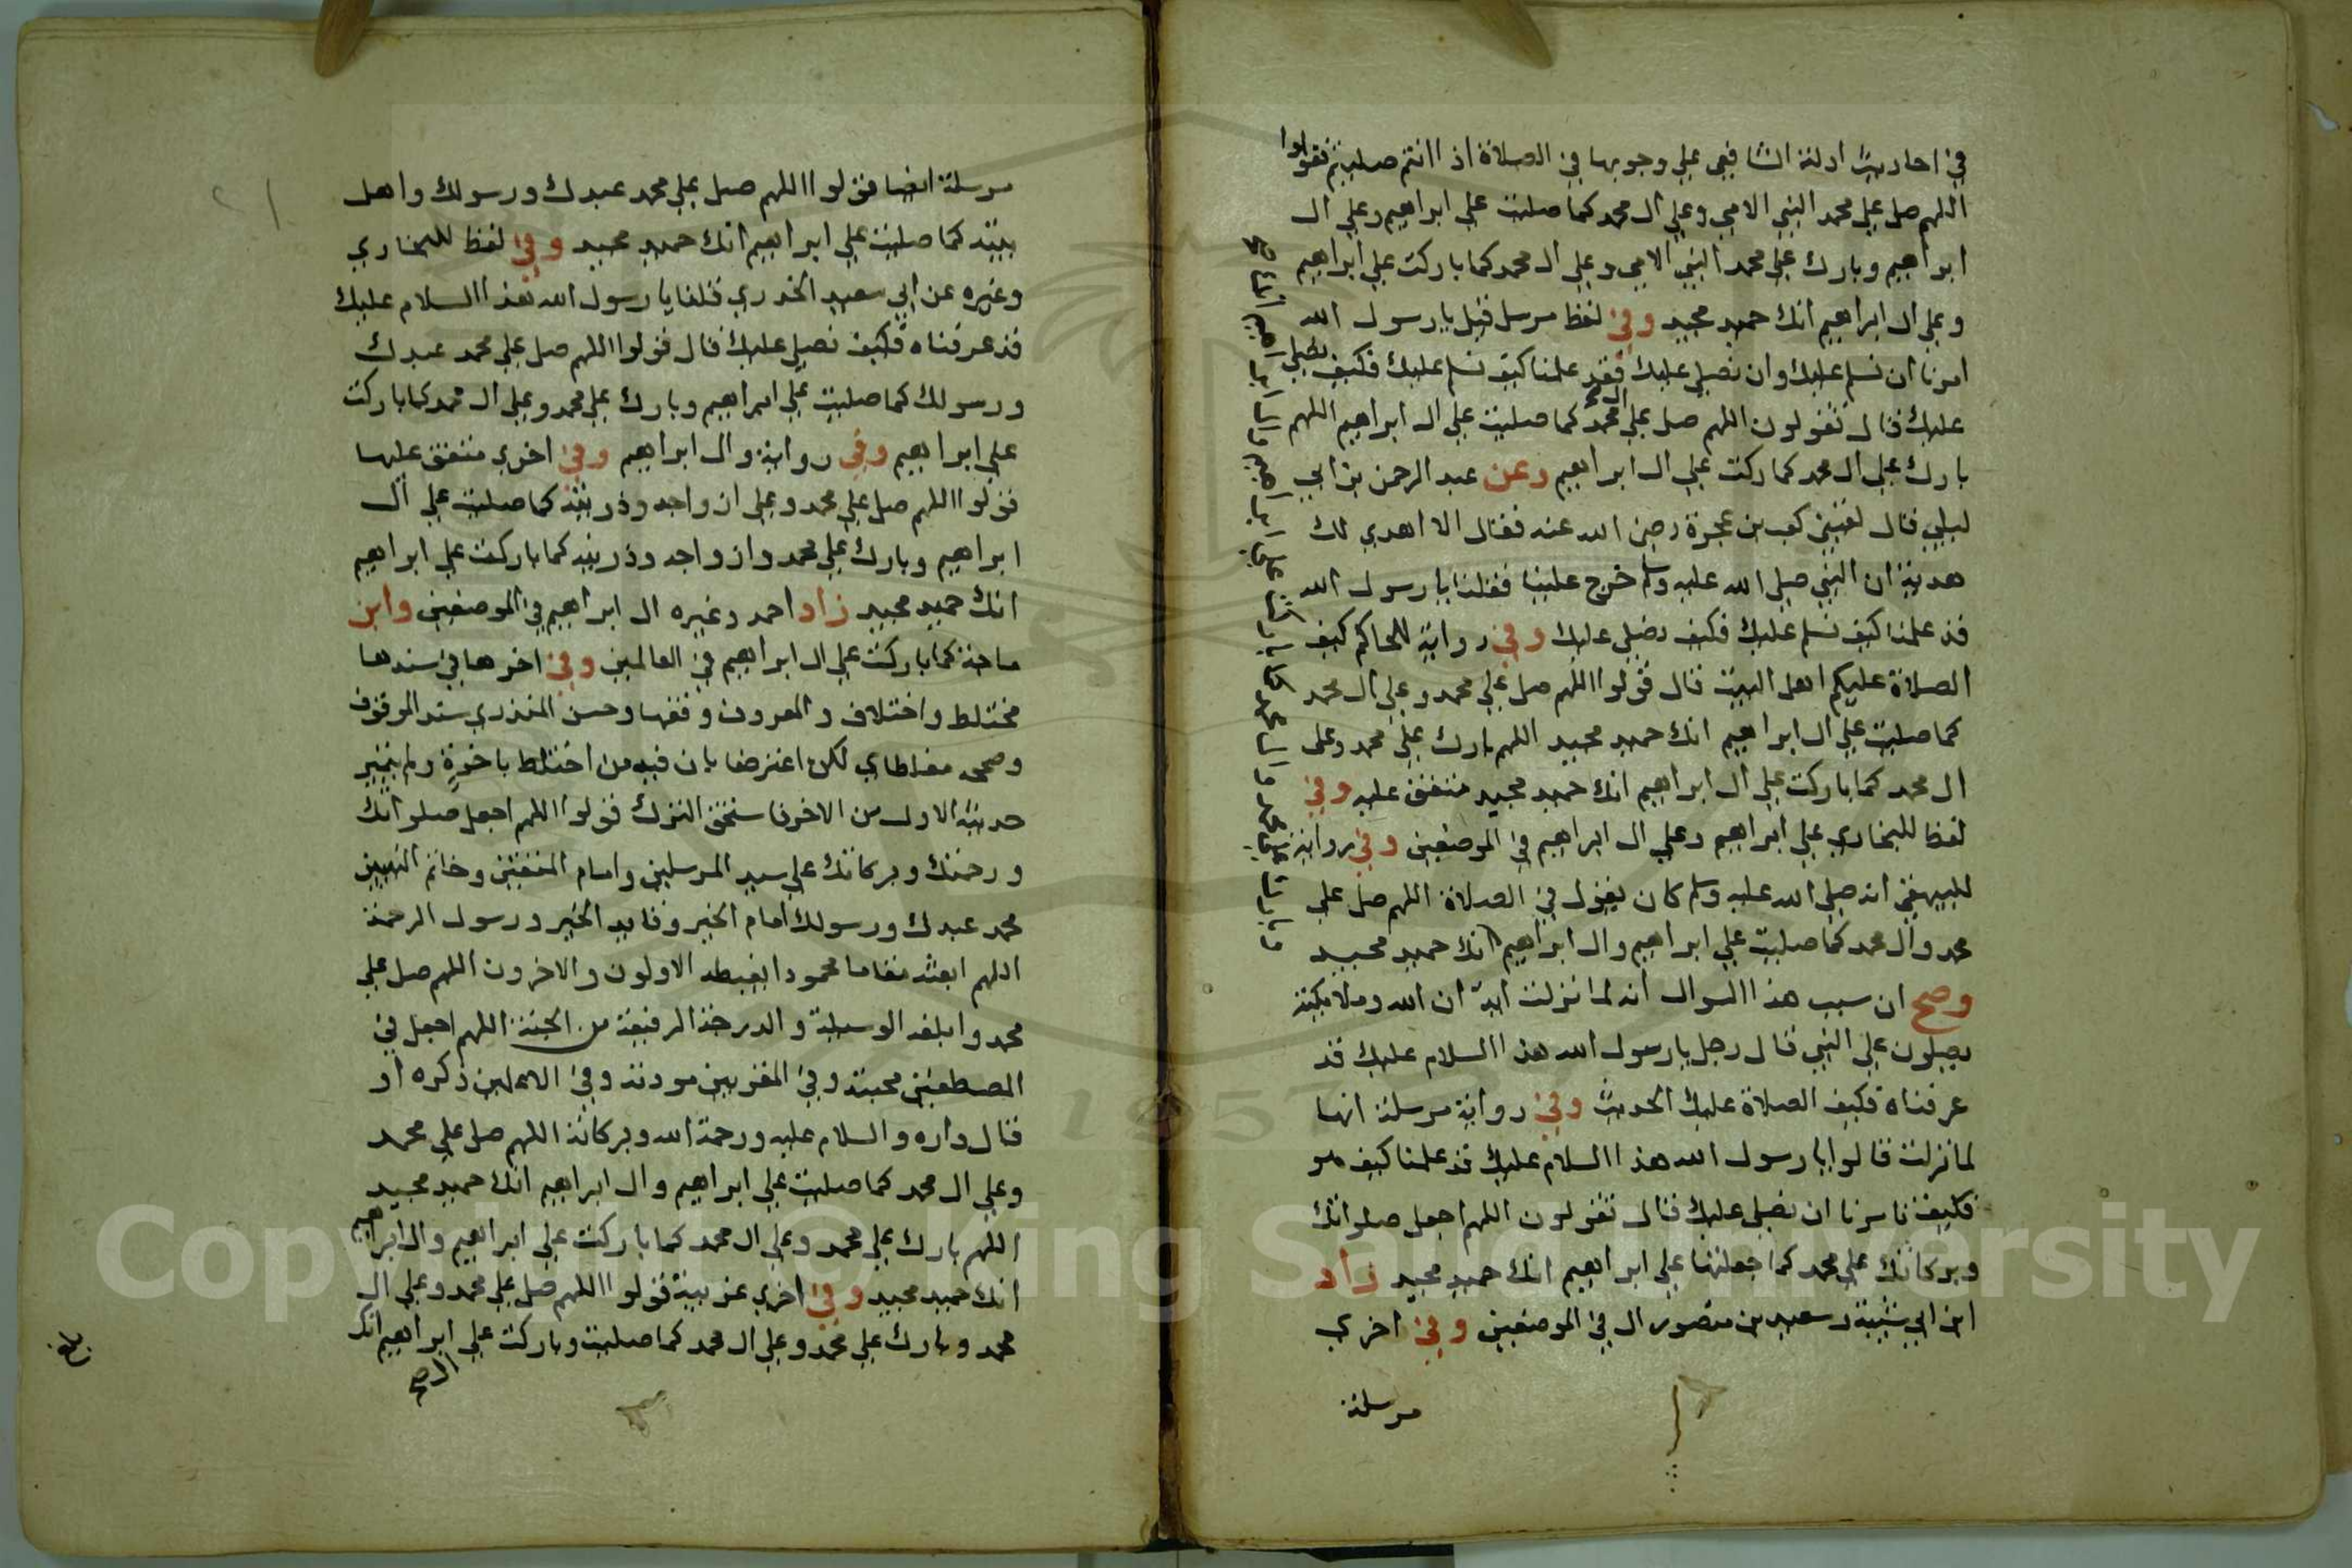 في احاديث ادلة الشافعي علي وجوبها في الصلاة اذا انتم صليتم فقولوا
اللهم صل علي محمد النبي الامي وعلي ال محمد كما صليت علي ابراهيم وعلي ال
ابراهيم وبارك علي محمد النبي الامي وعلي ال محمد كما باركت علي ابراهيم
وعلي ال ابراهيم انك حميد مجيد وفي لفظ مرسل قيل يا رسول الله
امرنا ان نسلم عليك وان نصلي عليك فقد علمنا كيف نسلم عليك فكيف نصلي
عليك قال تقولون اللهم صل علي ال محمد كما صليت علي ال ابراهيم اللهم
بارك علي ال محمد كما ركت علي ال ابراهيم وعن عبد الرحمن بن ابي
ليلي قال لقيني كعب بن عجرة رضي الله عنه فقال الا اهدي لك
هدية ان النبي صلي الله عليه وسلم خرج علينا فقلنا يا رسول الله
قد علمنا كيف نسلم عليك فكيف نصلي عليك وفي رواية للحاكم كيف
الصلاة عليكم اهل البيت قال قولوا اللهم صل علي محمد وعلي ال محمد
كما صليت علي ال ابراهيم انك حميد مجيد اللهم بارك علي محمد وعلي
ال محمد كما باركت علي ال ابراهيم انك حميد مجيد متفق عليه وفي
لفظ للبخاري علي ابراهيم وعلي ال ابراهيم في الموضعين وفي رواية
للبيهقي انه صلي الله عليه وسلم كان يقول في الصلاة اللهم صل علي
محمد وال محمد كما صليت علي ابراهيم وال ابراهيم انك حميد مجيد
وصح ان سبب هذا السوال انه لما نزلت اية ان الله وملايكته
يصلون علي النبي قال رجل يا رسول الله هذا السلام عليك قد
عرفناه فكيف الصلاة عليك الحديث وفي رواية مرسلة انها
لما نزلت قالوا يا رسول الله هذا السلام عليك قد علمنا كيف هو
فكيف تامرنا ان نصلي عليك قال تقولون اللهم اجعل صلواتك
وبركاتك علي محمد كما جعلتها علي ابراهيم انك حميد مجيد زاد
ابن ابي شيبة وسعيد بن منصور ال في الموضعين وفي اخري
مرسلة
مرسلة ايضا قولوا اللهم صل علي محمد عبدك ورسولك واهل
بيته كما صليت علي ابراهيم انك حميد مجيد وفي لفظ للبخاري
وغيره عن ابي سعيد الخدري قلنا يا رسول الله هذا السلام عليك
قد عرفناه فكيف نصلي عليك قال قولوا اللهم صل علي محمد عبدك
ورسولك كما صليت علي ابراهيم وبارك علي محمد وعلي ال محمد كما باركت
علي ابراهيم وفي رواية وال ابراهيم وفي اخري متفق عليها
قولوا اللهم صل علي محمد وعلي ازواجه وذريته كما صليت علي ال
ابراهيم وبارك علي محمد وازواجه وذريته كما باركت علي ابراهيم
انك حميد مجيد زاد احمد وغيره ال ابراهيم في الموضعين وابن
ماجة كما باركت علي ال ابراهيم في العالمين وفي اخرها في سندها
مختلط واختلاف والمعروف وقفها وحسن المنذري سند الموقوف
وصححه مغلطاي لكن اعترضا بان فيه من اختلط باخرة ولم يتميز
حديثه الاول من الاخر فاستحق الترك قولوا اللهم اجعل صلواتك
ورحمتك وبركاتك علي سيد المرسلين وامام المتقين وخاتم النبيين
محمد عبدك ورسولك امام الخير وقايد الخير ورسول الرحمة
اللهم ابعثه مقاما محمودا يغبطه الاولون والاخرون اللهم صل علي
محمد وابلغه الوسيلة والدرجة الرفيعة من الجنة اللهم اجعل في
المصطفين محبته وفي المقربين مودته وفي الاعلين ذكره او
قال داره والسلام عليه ورحمة الله وبركاته اللهم صل علي محمد
وعلي ال محمد كما صليت علي ابراهيم وال ابراهيم انك حميد مجيد
اللهم بارك علي محمد وعلي ال محمد كما باركت علي ابراهيم وال ابراهيم
انك حميد مجيد وفي اخري غريبة قولوا اللهم صل علي محمد وعلي ال
محمد وبارك علي محمد وعلي ال محمد كما صليت وباركت علي ال ابراهيم انك
بلغ
Copyright © King Saud University
1957